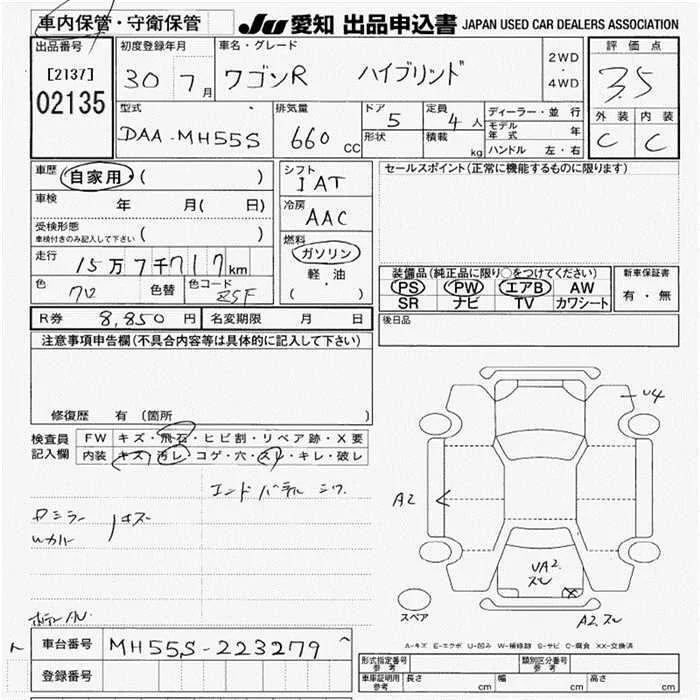 車内保管・守衛保管 JU 愛知 出品申込書 JAPAN USED CAR DEALERS ASSOCIATION
出品番号 初度登録年月 車名・グレード 評価点
[2137] 30 7月 ワゴンR ハイブリッド 2WD・4WD 3.5
02135
型式 排気量 ドア 5 定員 4人 ディーラー・並行 外装 内装
DAA-MH55S 660cc 形状 積載 kg モデル年式 年 C C
ハンドル 左・右
車歴 自家用・( ) シフト IAT セールスポイント(正常に機能するものに限ります)
車検 年 月( 日) 冷房 AAC
受検形態 ( )
車検付きのみ記入して下さい
燃料 ガソリン
走行 15万7千717km 軽・油
( )
色 クロ 色替 色コード ZSF
装備品(純正品に限り○をつけてください) 新車保証書
PS PW エアB AW 有・無
SR ナビ TV カワシート
R券 8,850円 名変期限 月 日 後日品
注意事項申告欄(不具合内容等は具体的に記入して下さい)
修復歴 有 〔箇所 〕
検査員記入欄 FW キズ・飛石・ヒビ割・リペア跡・X要
内装 キズ・汚レ・コゲ・穴・スレ・キレ・破レ
U4
A2
UA2
スレ
X
A2.スレ
スペア
A-キズ E-エクボ U-凹み W-補修跡 S-サビ C-腐食 XX-交換済
車台番号 MH55S-223279
登録番号
形式指定番号 参考 類別区分番号 参考
車庫証明用 参考 長さ cm 幅 cm 高さ cm